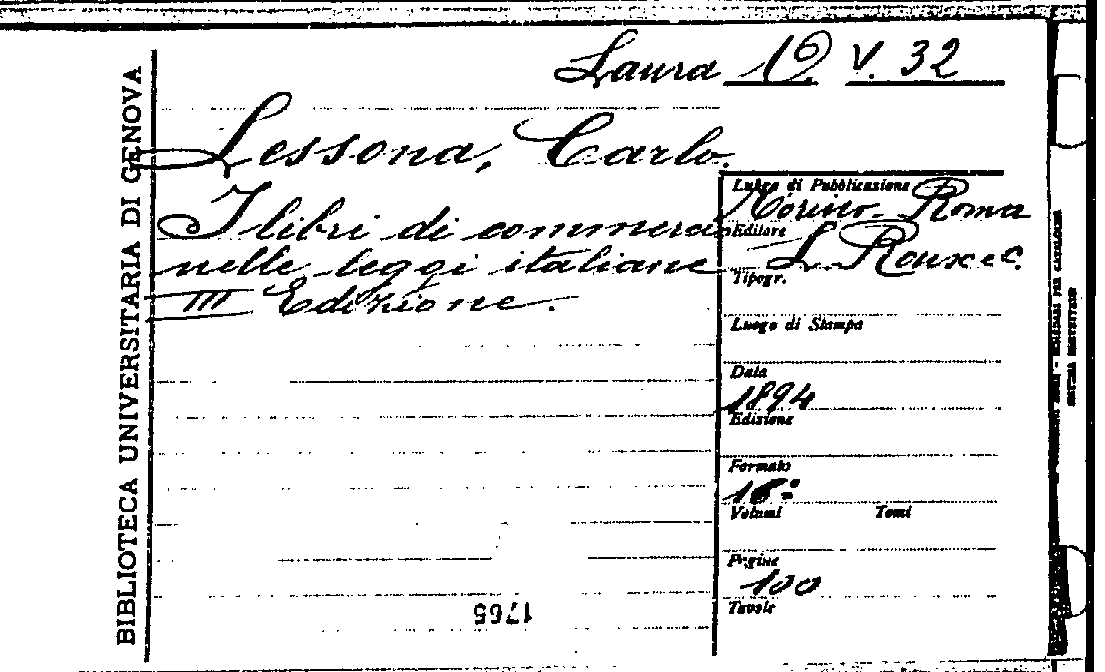 Laura 10 V. 32
BIBLIOTECA UNIVERSITARIA DI GENOVA
Lessona, Carlo.
I libri di commercio
nelle leggi italiane
III Edizione.
Luogo di Pubblicazione
Torino - Roma
Editore
L. Roux e C.
Tipogr.
Luogo di Stampa
Data
1894
Edizione
Formato
16°
Volumi Tomi
Pagine
100
Tavole
1765